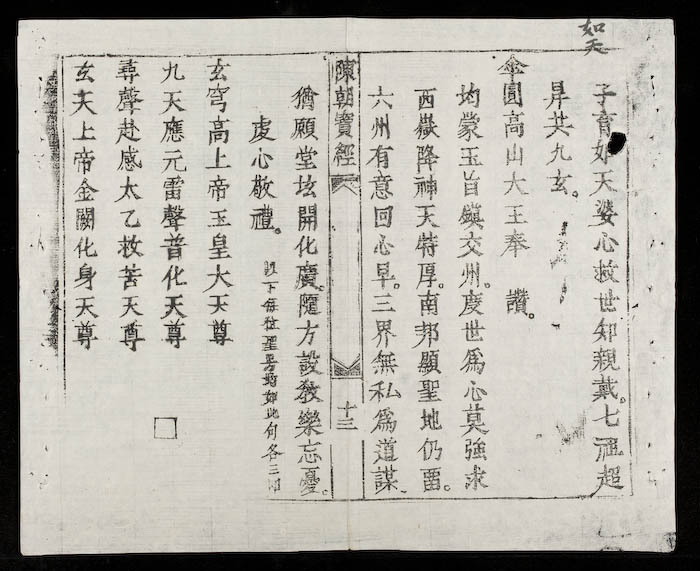 如天
子育如天婆心救世如親戴。七祖超
昇共九玄。
傘圓高山大王奉 讚。
均蒙玉旨鎮交州。度世爲心莫強求
西嶽降神天特厚。南邦顯聖地仍畱。
六州有意回心早。三界無私爲道謀。
陳朝寶經 十三
猶願堂垓開化廣。隨方設教樂忘憂。
虔心敬禮。 以下每位聖号均如此句各三
玄穹高上帝玉皇大天尊
九天應元雷聲普化天尊
尋聲赴感太乙救苦天尊
玄天上帝金闕化身天尊